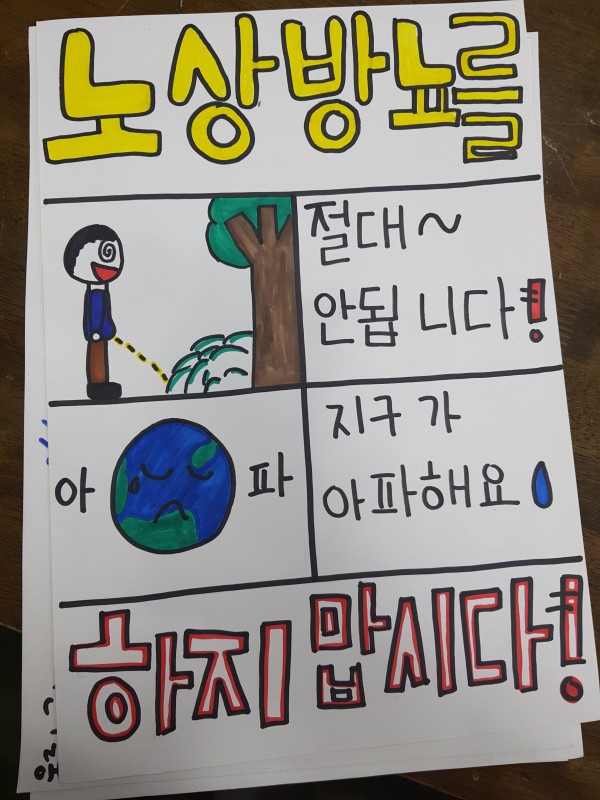 노상방뇨를
절대~
안됩 니다!
아 파
지구 가
아파해요
하지 맙시다!